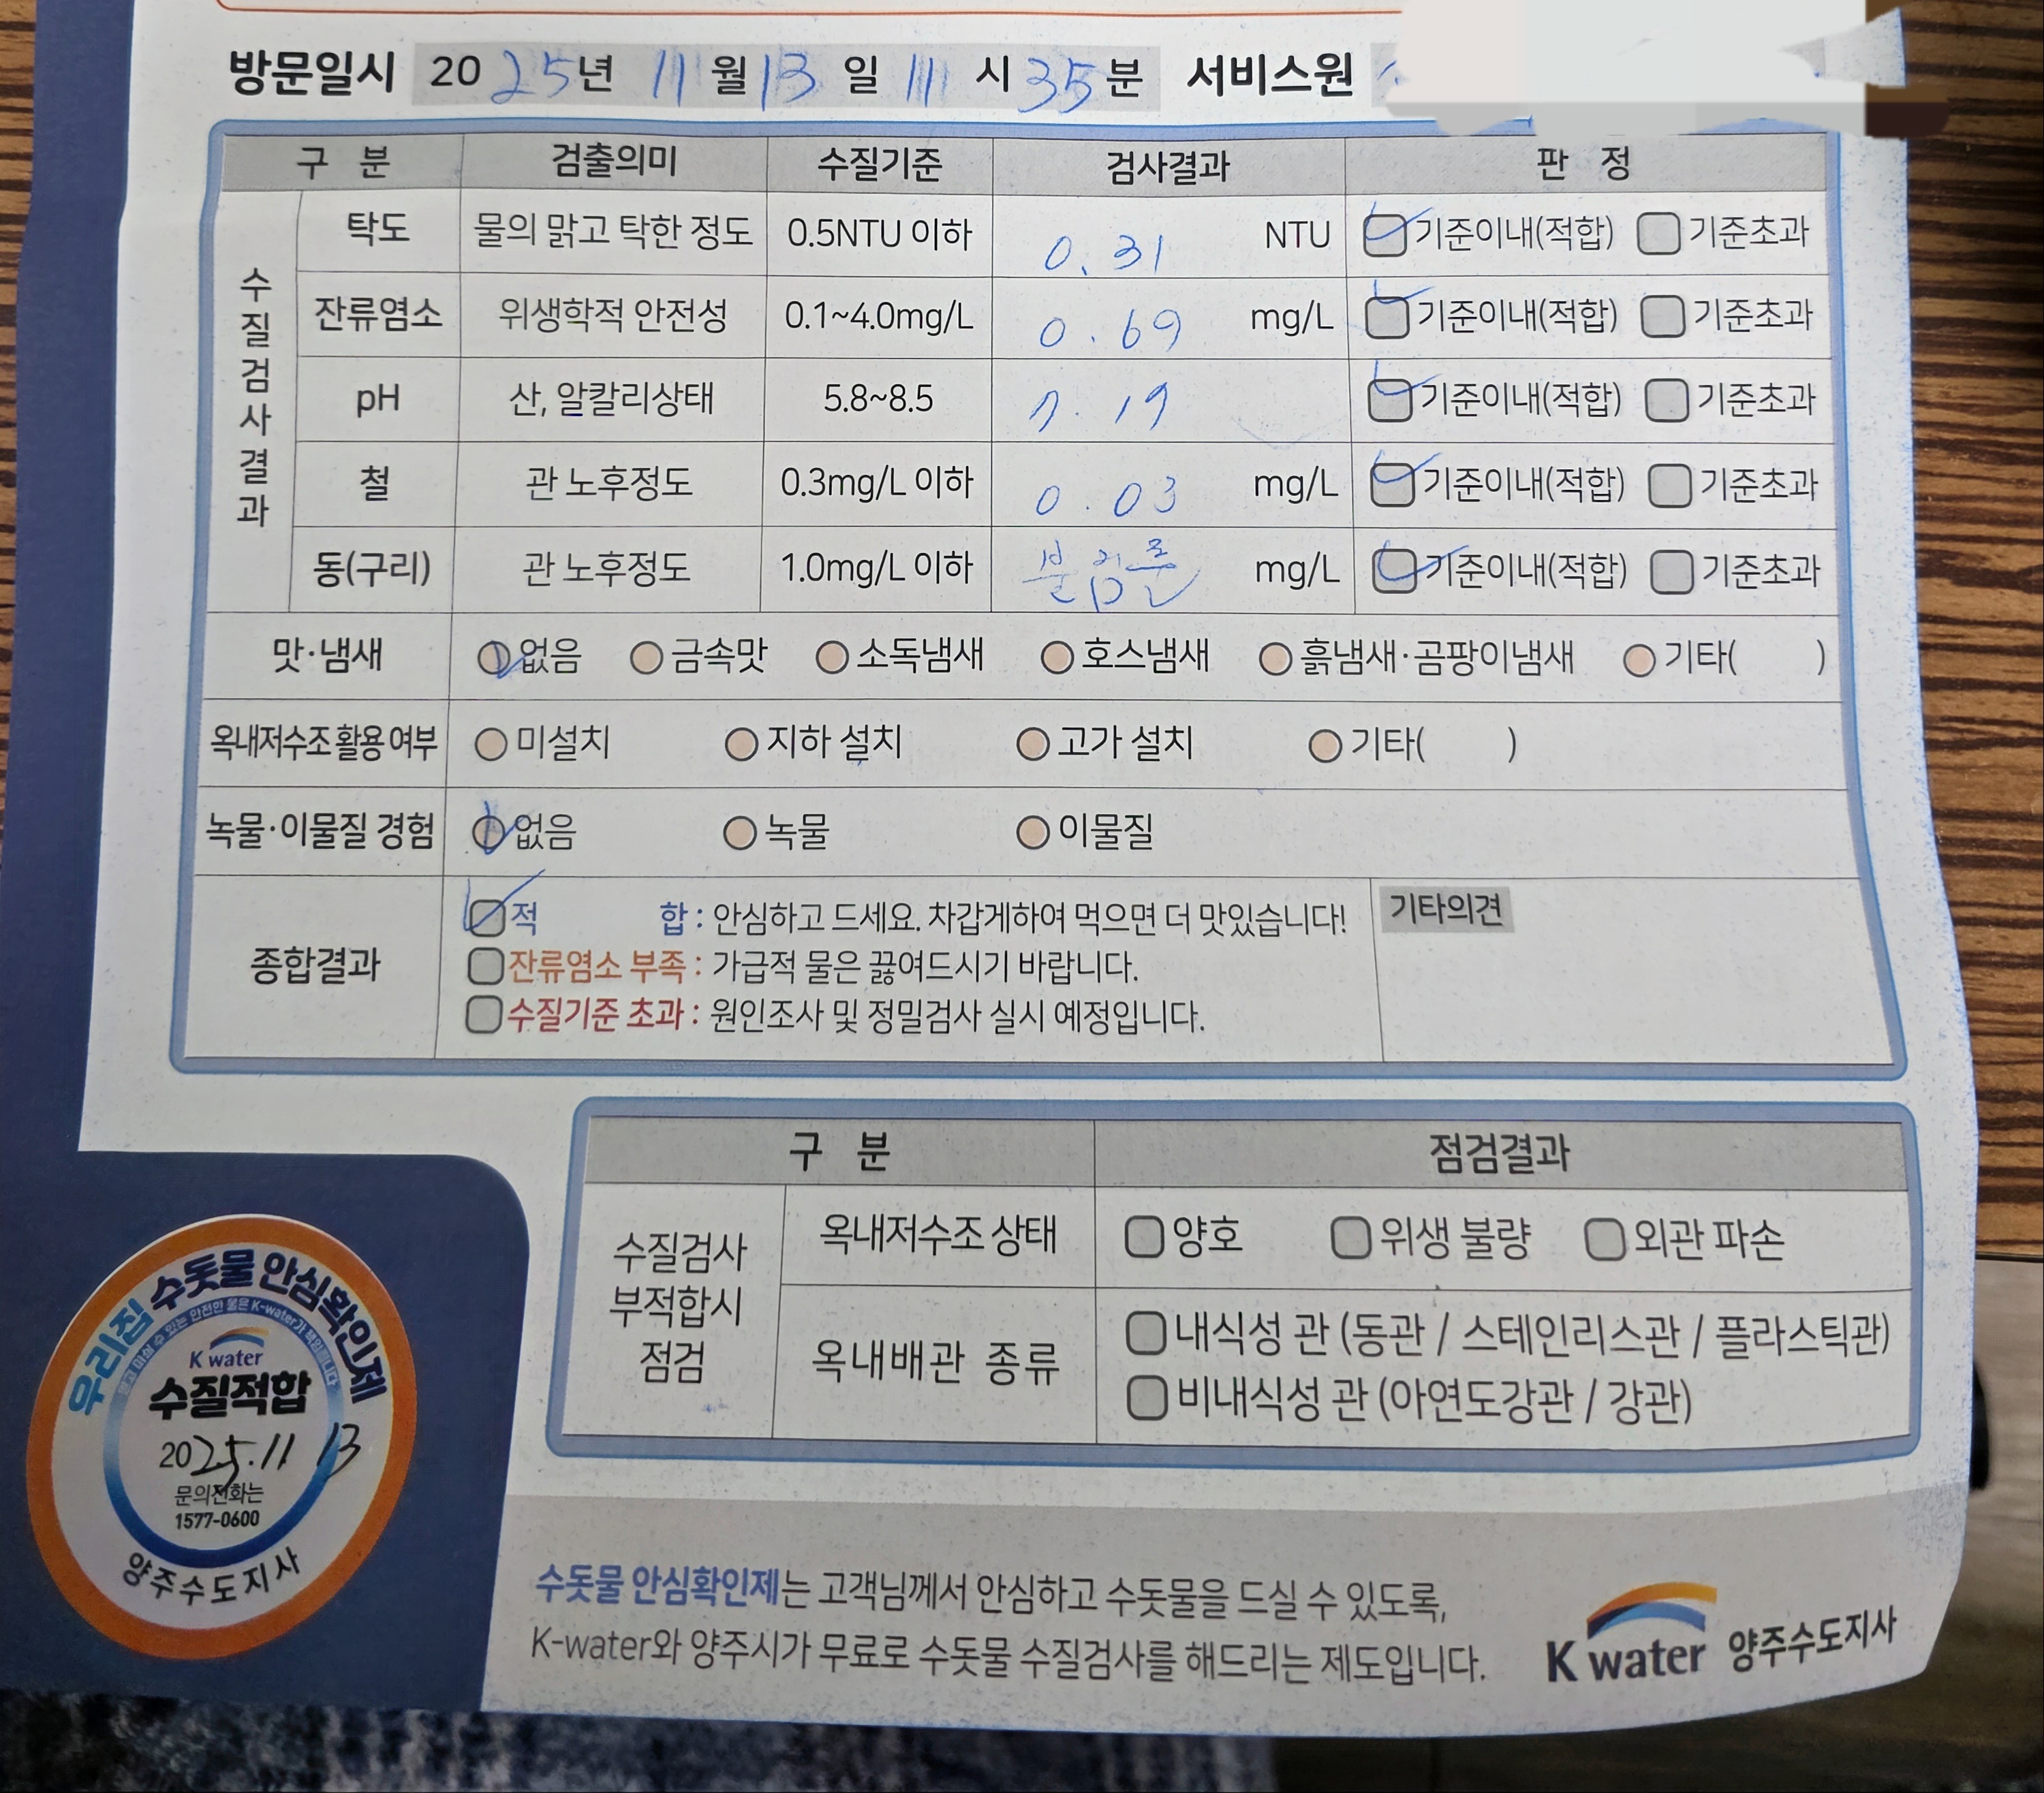 방문일시 2025년 11월 13일 11시 35분 서비스원
구 분 검출의미 수질기준 검사결과 판 정
수질검사결과
탁도 물의 맑고 탁한 정도 0.5NTU 이하 0.31 NTU 기준이내(적합) 기준초과
잔류염소 위생학적 안전성 0.1~4.0mg/L 0.69 mg/L 기준이내(적합) 기준초과
pH 산, 알칼리상태 5.8~8.5 7.19 기준이내(적합) 기준초과
철 관 노후정도 0.3mg/L 이하 0.03 mg/L 기준이내(적합) 기준초과
동(구리) 관 노후정도 1.0mg/L 이하 불검출 mg/L 기준이내(적합) 기준초과
맛·냄새 없음 금속맛 소독냄새 호스냄새 흙냄새·곰팡이냄새 기타( )
옥내저수조 활용 여부 미설치 지하 설치 고가 설치 기타( )
녹물·이물질 경험 없음 녹물 이물질
종합결과
적 합 : 안심하고 드세요. 차갑게하여 먹으면 더 맛있습니다!
잔류염소 부족 : 가급적 물은 끓여드시기 바랍니다.
수질기준 초과 : 원인조사 및 정밀검사 실시 예정입니다.
기타의견
구 분 점검결과
수질검사
부적합시
점검
옥내저수조 상태 양호 위생 불량 외관 파손
옥내배관 종류
내식성 관 (동관 / 스테인리스관 / 플라스틱관)
비내식성 관 (아연도강관 / 강관)
우리집 수돗물 안심확인제
믿고 마실 수 있는 안전한 물은 K-water가 책임집니다
K water
수질적합
2025.11 13
문의전화는
1577-0600
양주수도지사
수돗물 안심확인제는 고객님께서 안심하고 수돗물을 드실 수 있도록,
K-water와 양주시가 무료로 수돗물 수질검사를 해드리는 제도입니다.
K water 양주수도지사